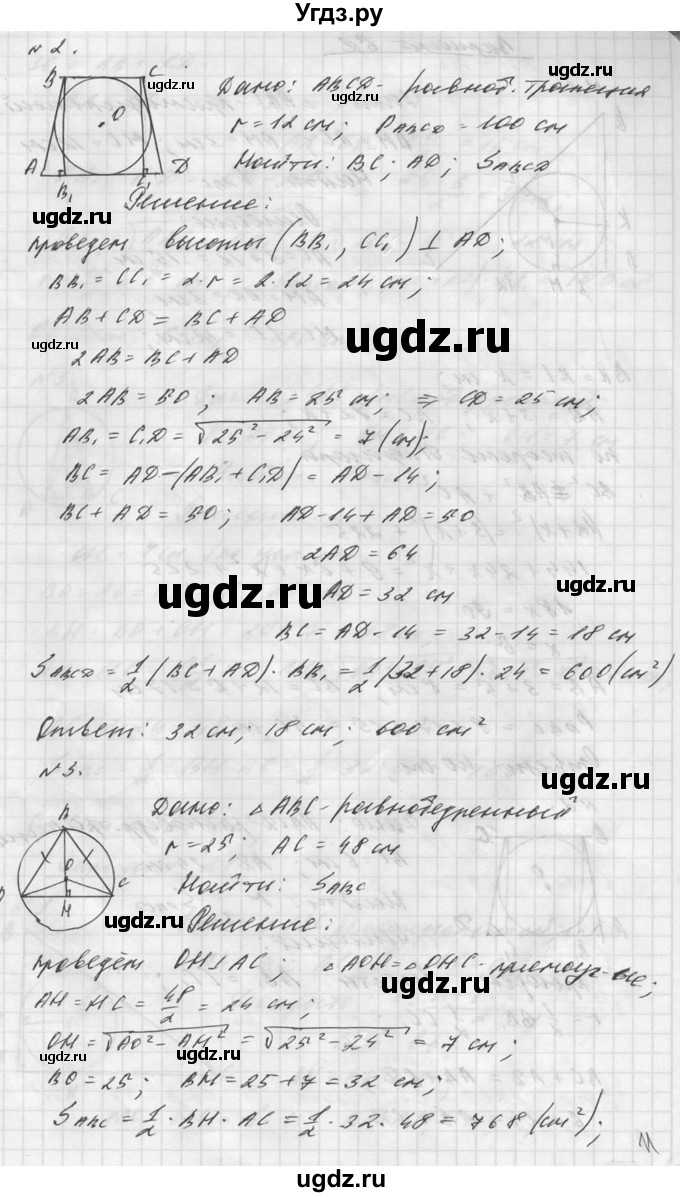 Угдз.ру
№ 2.
ugdz.ru
B C
O
A B₁ D
Дано: ABCD - равноб. трапеция
r = 12 см; P_ABCD = 100 см
ugdz.ru
Найти: BC; AD; S_ABCD
ugdz.ru
ugdz.ru
Решение:
проведем высоты (BB₁, CC₁) ⊥ AD;
BB₁ = CC₁ = 2·r = 2·12 = 24 см;
ugdz.ru
AB + CD = BC + AD
ugdz.ru
ugdz.ru
2AB = BC + AD
2AB = 50; AB = 25 см; ⇒ CD = 25 см;
AB₁ = C₁D = √25² − 24² = 7 (см);
ugdz.ru
BC = AD − (AB₁ + C₁D) = AD − 14;
BC + AD = 50; AD − 14 + AD = 50
2AD = 64
ugdz.ru
ugdz.ru
AD = 32 см
BC = AD − 14 = 32 − 14 = 18 см
S_ABCD = 1/2 (BC + AD) · BB₁ = 1/2 (32 + 18) · 24 = 600 (см²)
ugdz.ru
Ответ: 32 см; 18 см; 600 см²
№ 3.
ugdz.ru
B
O
C
H
Дано: △ABC - равнобедренный
r = 25; AC = 48 см
ugdz.ru
Найти: S_ABC
ugdz.ru
Решение:
проведём OH ⊥ AC; △AOH = △OHC - прямоуг-ые;
ugdz.ru
AH = HC = 48/2 = 24 см;
ugdz.ru
OH = √AO² − AH² = √25² − 24² = 7 см;
ugdz.ru
ugdz.ru
BO = 25; BH = 25 + 7 = 32 см;
S_ABC = 1/2 · BH · AC = 1/2 · 32 · 48 = 768 (см²);
ugdz.ru
ugdz.ru